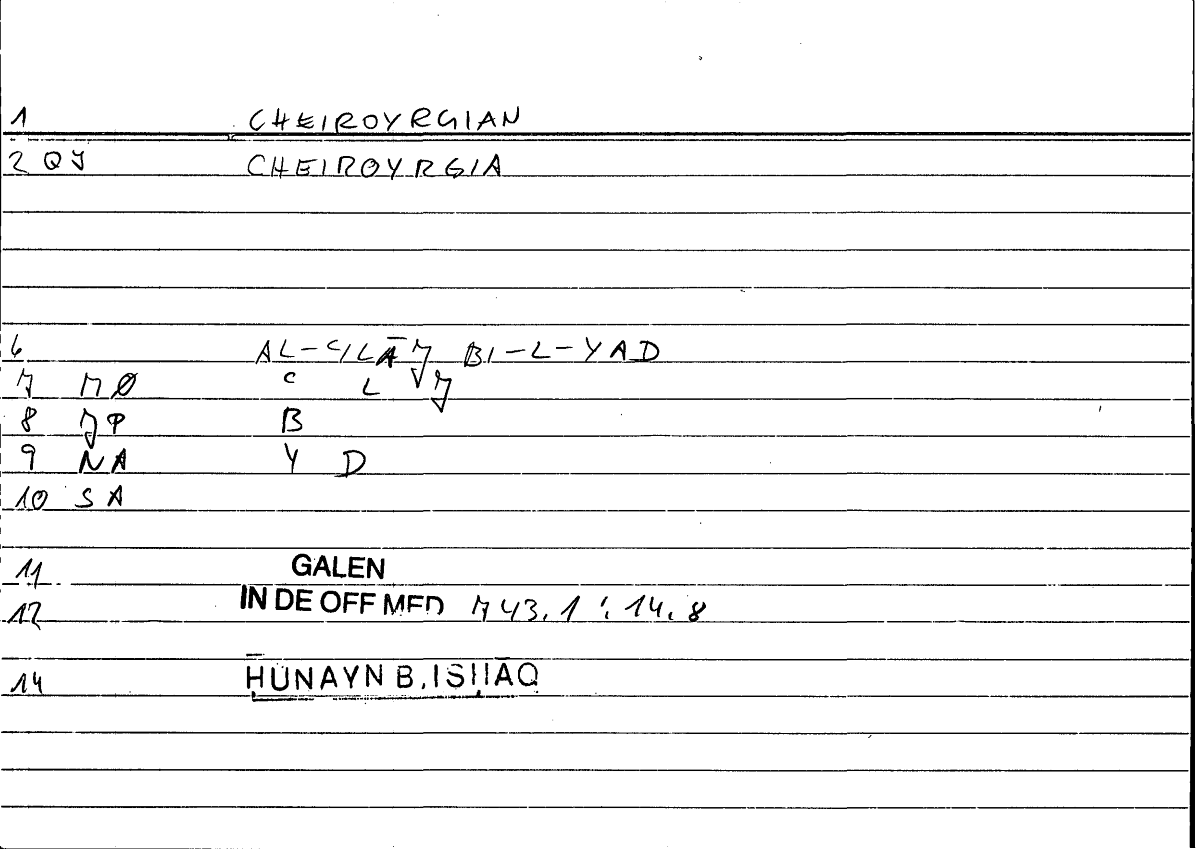 1 CHEIROYRGIAN
2 QJ CHEIROYRGIA
6 AL-ʿILĀJ BI-L-YAD
7 MØ ʿ L J̌
8 JP B
9 NA Y D
10 SA
11 GALEN
12 IN DE OFF MED 743.1 : 14.8
14 ḤUNAYN B. ISḤĀQ